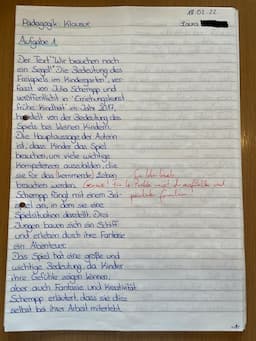 18.01.22
Pädagogik Klausur
Laura
Aufgabe 1
Der Text "Wir brauchen noch
ein Segel!" Die Bedeutung des
Freispiels im Kindergarten", ver-
fasst von Julia Schempp und
veröffentlicht in "Erziehungskunst
Frühe Kindheit" im Jahr 2017,
handelt von der Bedeutung des
Spiels bei kleinen Kindern.
Die Hauptaussage der Autorin
ist, dass Kinder das Spiel
brauchen, um viele wichtige
Kompetenzen auszubilden, die
sie für das (kommende) Leben
brauchen werden.
Schempp fängt mit einem Bei-
spiel an, in dem sie eine
Spielsituation darstellt. Drei
Jungen bauen sich ein Schiff
und erleben durch ihre Fantasie
ein Abenteuer.
Das Spiel hat eine große und
wichtige Bedeutung, da Kinder
ihre Gefühle zeigen können,
aber auch Fantasie und Kreativität.
Schempp erläutert, dass sie dies
selbst bei ihrer Arbeit miterlebt.